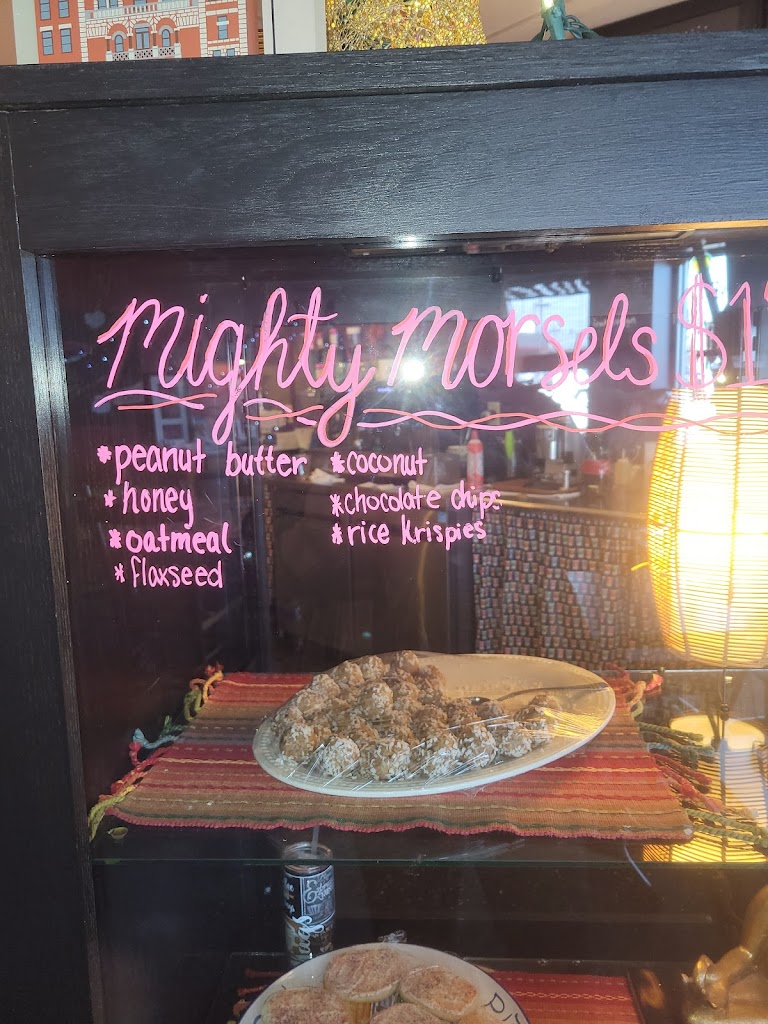 Mighty Morsels $1
*peanut butter
*honey
*oatmeal
*flaxseed
*coconut
*chocolate chips
*rice krispies